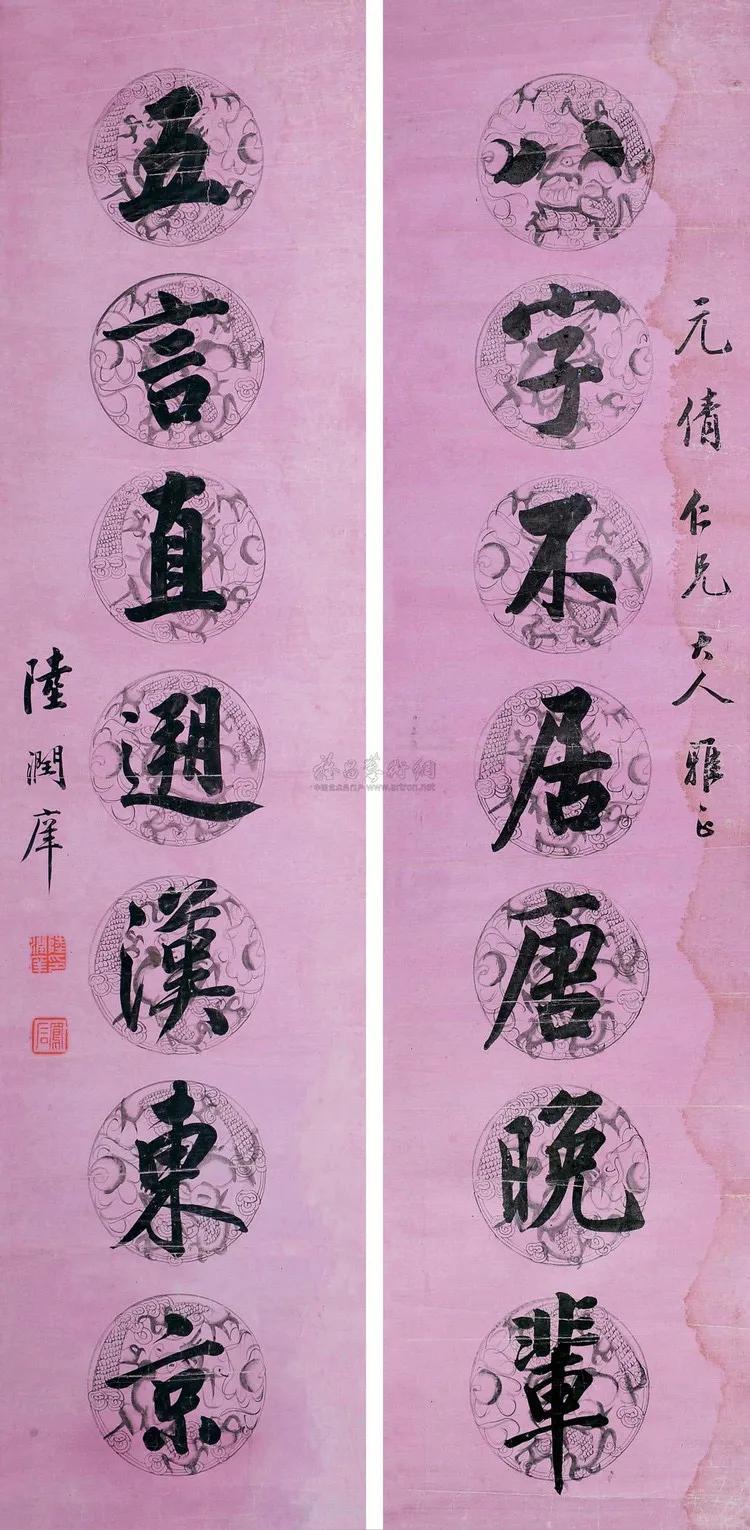 元倩仁兄大人雅正
八字不居唐晚輩
五言直遡漢東京
陸潤庠
雅昌藝術網
中国艺术品门户 www.artron.net